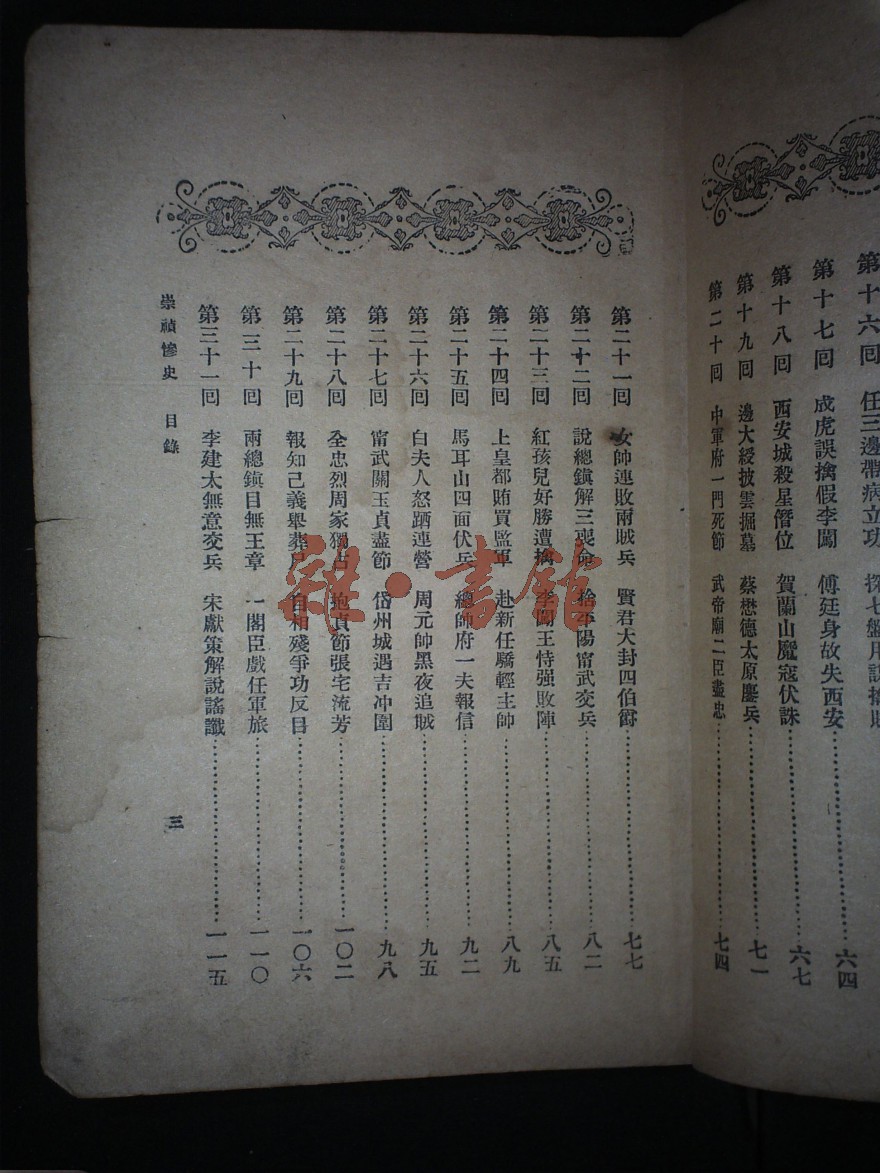 第十六回 任三邊帶病立功
第十七回 成虎誤擒假李闖 傅廷身故失西安 六四
第十八回 西安城殺星僭位 賀蘭山魔寇伏誅 六七
第十九回 邊大綬披雲掘墓 蔡懋德太原鏖兵 七一
第二十回 中軍府一門死節 武帝廟二臣盡忠 七四
第二十一回 女帥連敗兩賊兵 賢君大封四伯爵 七七
第二十二回 說總鎮解三喪命 平陽甯武交兵 八二
第二十三回 紅孩兒好勝遭擒 李闖王恃强敗陣 八五
第二十四回 上皇都賄買監軍 赴新任驕輕主帥 八九
第二十五回 馬耳山四面伏兵 總帥府一夫報信 九二
第二十六回 白夫人怒躧連營 周元帥黑夜追賊 九五
第二十七回 甯武關玉貞盡節 岱州城遇吉冲圍 九八
第二十八回 全忠烈周家獨占 抱貞節張宅流芳 一〇二
第二十九回 報知己義舉葬尸 自相殘爭功反目 一〇六
第三十回 兩總鎮目無王章 一閣臣戲任軍旅 一一〇
第三十一回 李建太無意交兵 宋獻策解說謠讖 一一五
崇禎慘史 目錄
三
雜·書館